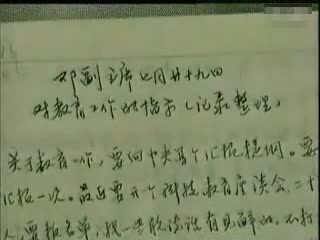 邓副主席七月廿九日
对教育工作的指示(记录整理)
关于教育工作,要向中央写个汇报提纲。要
汇报一次。最近要开个科技教育座谈会,二十
人,要报名单,找一些敢说话有见解的,不打